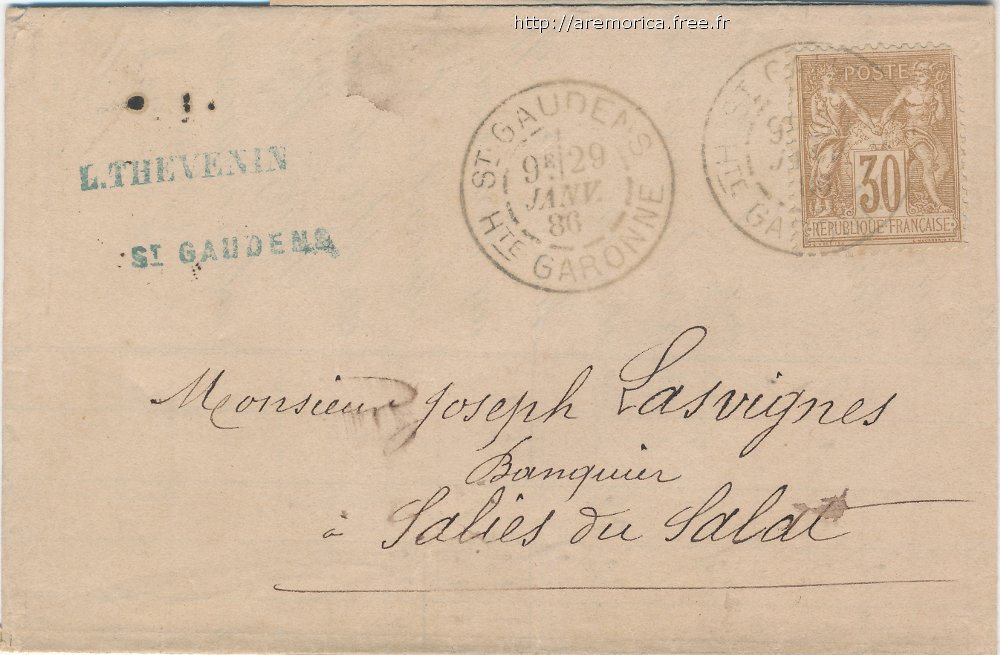 http://aremorica.free.fr
L. THEVENIN
ST GAUDENS
ST GAUDENS
9E 29
JANV.
86
HTE GARONNE
POSTE
30
REPUBLIQUE FRANÇAISE
HTE GA
Monsieur Joseph Lasvignes
Banquier
à Salies du Salat